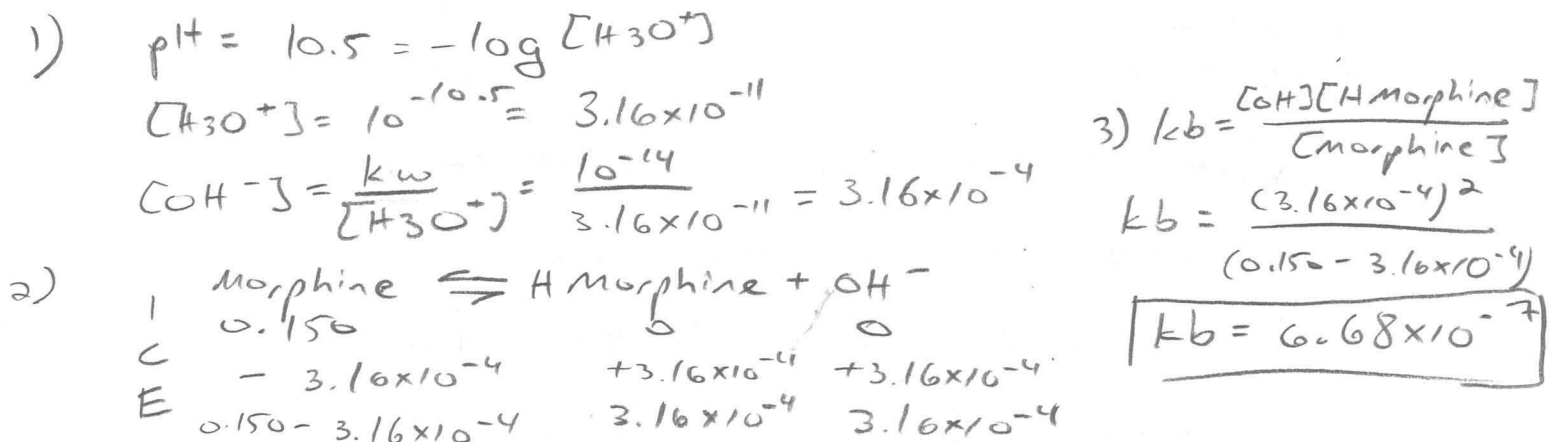 1) pH = 10.5 = -log [H3O⁺]
[H3O⁺] = 10^-10.5 = 3.16x10^-11
[OH⁻] = kw/[H3O⁺] = 10^-14/3.16x10^-11 = 3.16x10^-4
2) Morphine ⇌ H Morphine + OH⁻
I 0.150 0 0
C - 3.16x10^-4 +3.16x10^-4 +3.16x10^-4
E 0.150 - 3.16x10^-4 3.16x10^-4 3.16x10^-4
3) kb = [OH][H Morphine]/[Morphine]
kb = (3.16x10^-4)^2/(0.150 - 3.16x10^-4)
kb = 6.68x10^-7